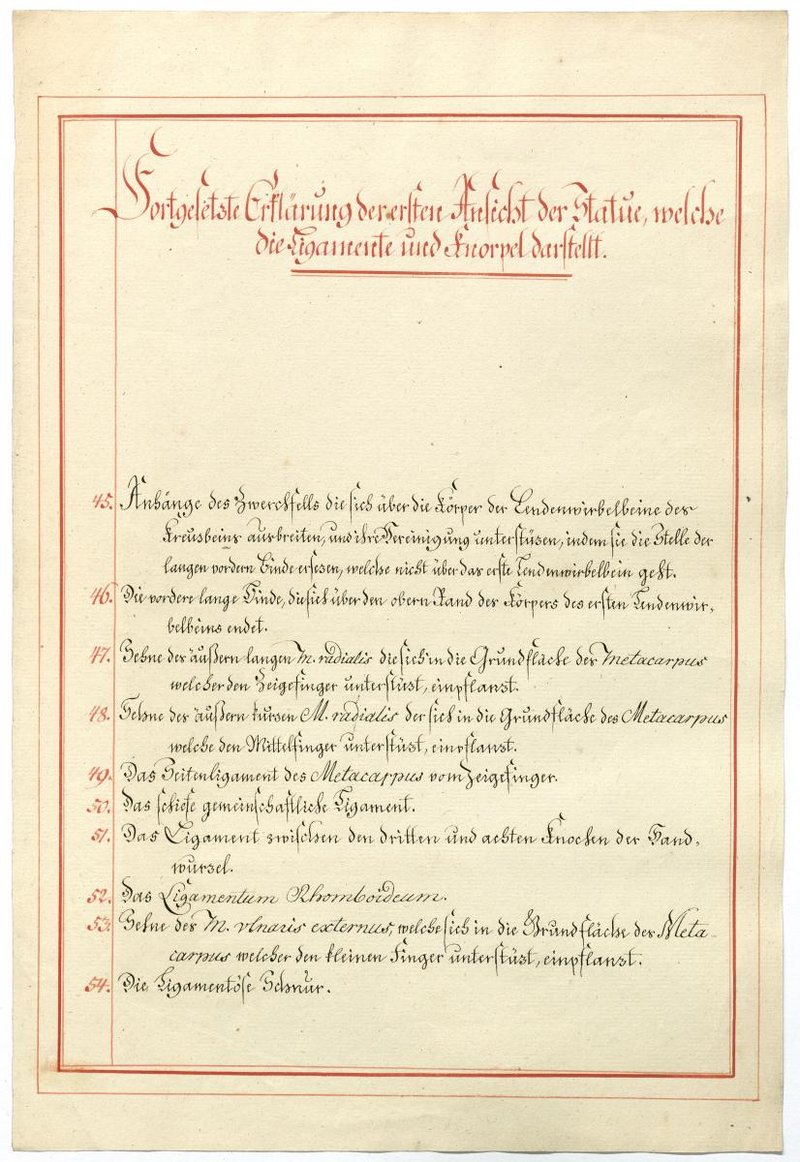 Fortgesetzte Erklärung der ersten Ansicht der Statue, welche
die Ligamente und Knorpel darstellt.
45. Anhänge des Zwerckfells die sich über die Körper der Lendenwirbelbeine des
Kreuzbeins ausbreiten, und ihre Vereinigung unterstüzen, indem sie die Stelle der
langen vordern Binde ersezen, welche nicht über das erste Lendenwirbelbein geht.
46. Die vordere lange Binde, die sich über den obern Rand des Körpers des ersten Lendenwir-
belbeins endet.
47. Sehne des äußern langen M. radialis die sich in die Grundfläche des Metacarpus
welcher den Zeigefinger unterstüzt, einpflanzt.
48. Sehne des äußern kurzen M. radialis der sich in die Grundfläche des Metacarpus
welche den Mittelfinger unterstüzt, einpflanzt.
49. Das Seitenligament des Metacarpus vom Zeigefinger.
50. Das schiefe gemeinschaftliche Ligament.
51. Das Ligament zwischen den dritten und achten Knochen der Hand-
wurzel.
52. Das Ligamentum Rhomboideum.
53. Sehne des M. vlnaris externus, welche sich in die Grundfläche des Meta-
carpus welcher den kleinen Finger unterstüzt, einpflanzt.
54. Die Ligamentöse Schnur.